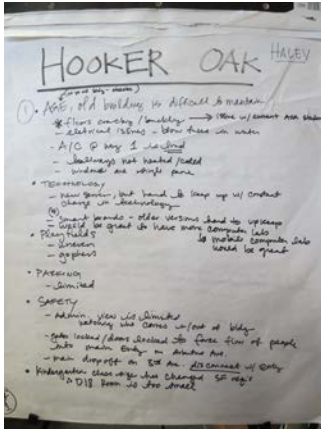 HOOKER OAK
HALEY
① • AGE, old building is difficult to maintain
* floors cracking / buckling → issue w/ cement
- eletrical issues - blow fuses in winter
- A/C @ wing 1 is loud
- hallways not heated/cooled
- windows are single pane
• TECHNOLOGY
- new server, but hard to keep up w/ constant
change in technology
- smart boards - older versions hard to upkeep
- would be great to have more computer labs
↳ mobile computer lab
would be great
• Playfields
- uneven
- gophers
• PARKING
- limited
• SAFETY
- Admin. view is limited
watching who comes in/out of bldg
- gates locked/doors locked to force flow of people
into main entry on Arbutus Ave.
- main dropoff on 3rd Ave. disconnect w/ entry
• Kindergarten class size has changed SF req's
↳ D18 Room is too small